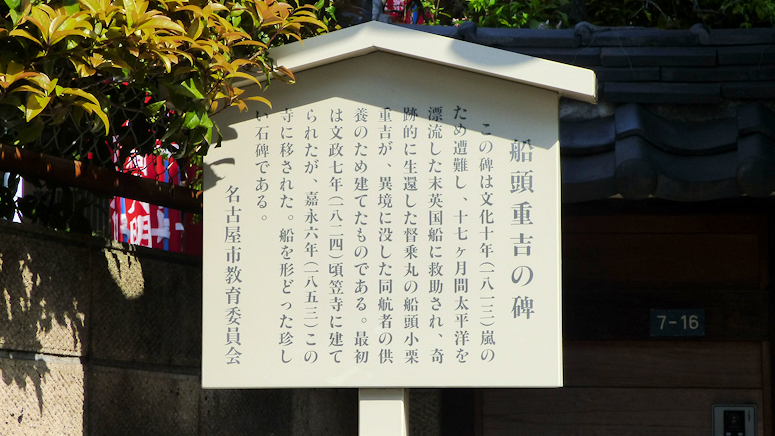 船頭重吉の碑
この碑は文化十年(一八一三)嵐の
ため遭難し、十七ヶ月間太平洋を
漂流した末英国船に救助され、奇
跡的に生還した督乗丸の船頭小栗
重吉が、異境に没した同航者の供
養のため建てたものである。最初
は文政七年(一八二四)頃笠寺に建て
られたが、嘉永六年(一八五三)この
寺に移された。船を形どった珍し
い石碑である。
名古屋市教育委員会
7-16